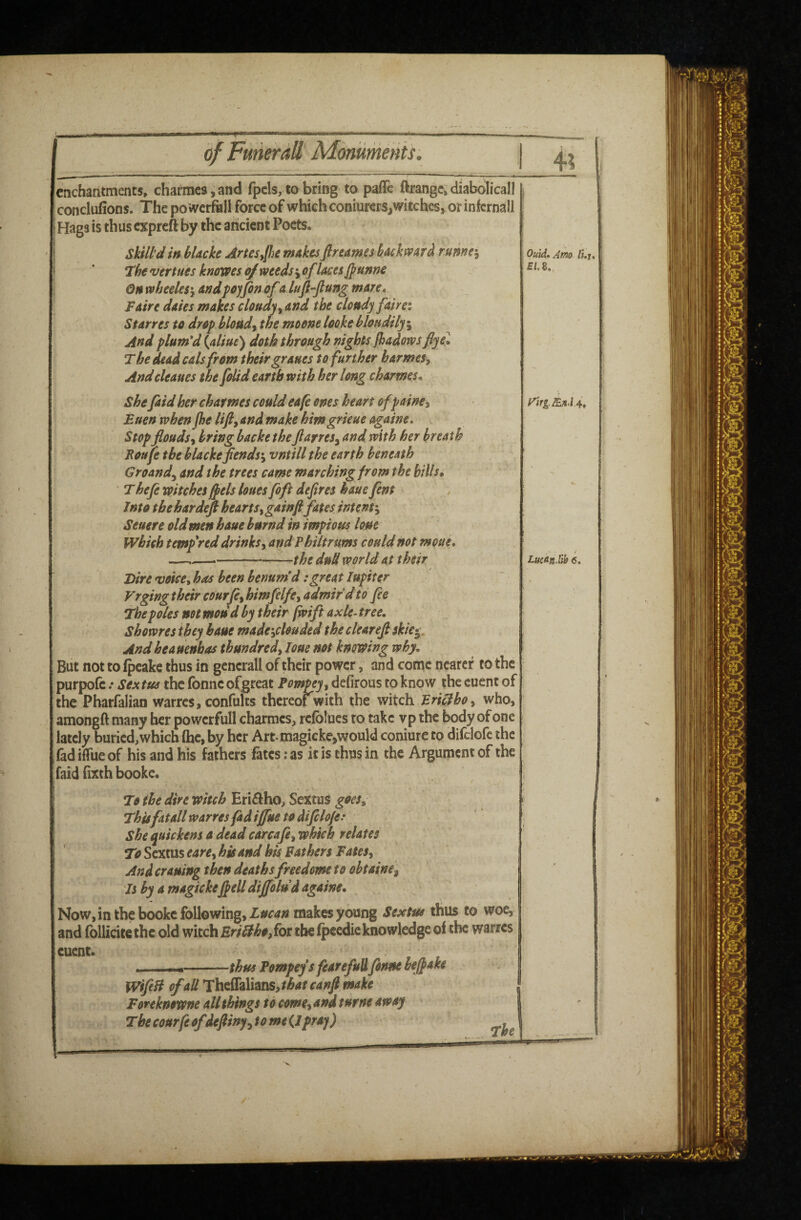 of Funerall Monuments. 43
enchantments, charmes, and ſpels, to bring to paſſe ſtrange, diabolicall
concluſions. The powerfull force of which coniurers, witches, or infernall
Hags is thus expreſt by the ancient Poets.
Skill'd in blacke Artes, ſhe makes ſtreames backward runne;
The vertues knowes of weeds; of laces ſpunne
On wheeles; and poyſon of a luſt-ſtung mare.
Faire daies makes cloudy, and the cloudy faire:
Starres to drop bloud, the moone looke bloudily;
And plum'd (aliue) doth through nights ſhadows flye.
The dead cals from their graues to further harmes,
And cleaues the ſolid earth with her long charmes.
Ouid. Amo li.1.
El. 8.
She ſaid her charmes could eaſe ones heart of paine,
Euen when ſhe liſt, and make him grieue againe.
Stop flouds, bring backe the ſtarres, and with her breath
Rouſe the blacke fiends; vntill the earth beneath
Groand, and the trees came marching from the hills.
Virg. Æn.l 4.
Theſe witches ſpels loues ſoft deſires haue ſent
Into the hardeſt hearts, gainſt fates intent;
Seuere old men haue burnd in impious loue
Which temp'red drinks, and Philtrums could not moue.
——the dull world at their
Dire voice, has been benum'd: great Iupiter
Vrging their courſe, himſelfe, admir'd to ſee
The poles not mou'd by their ſwift axle-tree.
Showres they haue made; clouded the cleareſt skie;
And heauen has thundred, Ioue not knowing why.
Lucan. lib 6.
But not to ſpeake thus in generall of their power, and come nearer to the
purpoſe: Sextus the ſonne of great Pompey, deſirous to know the euent of
the Pharſalian warres, conſults thereof with the witch Ericthо, who,
amongſt many her powerfull charmes, reſolues to take vp the body of one
lately buried, which ſhe, by her Art-magicke, would coniure to diſcloſe the
ſad iſſue of his and his fathers fates: as it is thus in the Argument of the
ſaid ſixth booke.
To the dire witch Ericthо, Sextus goes,
This fatall warres ſad iſſue to diſcloſe:
She quickens a dead carcaſe, which relates
To Sextus eare, his and his Fathers Fates,
And crauing then deaths freedome to obtaine,
Is by a magicke ſpell diſſolu'd againe.
Now, in the booke following, Lucan makes young Sextus thus to woe,
and ſollicite the old witch Ericthо, for the ſpeedie knowledge of the warres
euent.
——thus Pompey's fearefull ſonne beſpake
Wiſeſt of all Theſſalians, that canſt make
Foreknowne all things to come, and turne away
The courſe of deſtiny, to me (I pray)
The